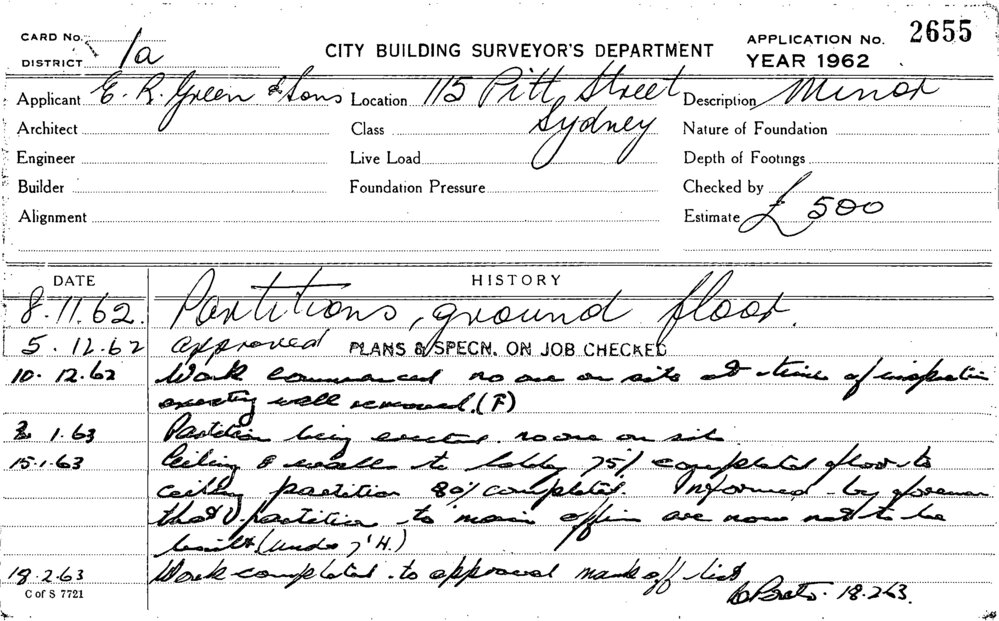 CARD No.
DISTRICT 1a
CITY BUILDING SURVEYOR'S DEPARTMENT
APPLICATION No. 2655
YEAR 1962
Applicant E. R. Green & Sons Location 115 Pitt Street Description Minor
Architect Class Sydney Nature of Foundation
Engineer Live Load Depth of Footings
Builder Foundation Pressure Checked by
Alignment Estimate £500
DATE HISTORY
8.11.62. Partitions, ground floor.
5.12.62 approved PLANS & SPECN. ON JOB CHECKED
10.12.62 Work commenced no one on site at time of inspection
existing wall removed. (F)
1.63 Partition being erected. no one on site
15.1.63 Ceiling & walls to lobby 75% completed floor to
ceiling partition 80% completed. Informed by foreman
that partition to main office are now not to be
built (under 7'H.)
18.2.63 Work completed to approval mark off list
18.2.63.
C of S 7721